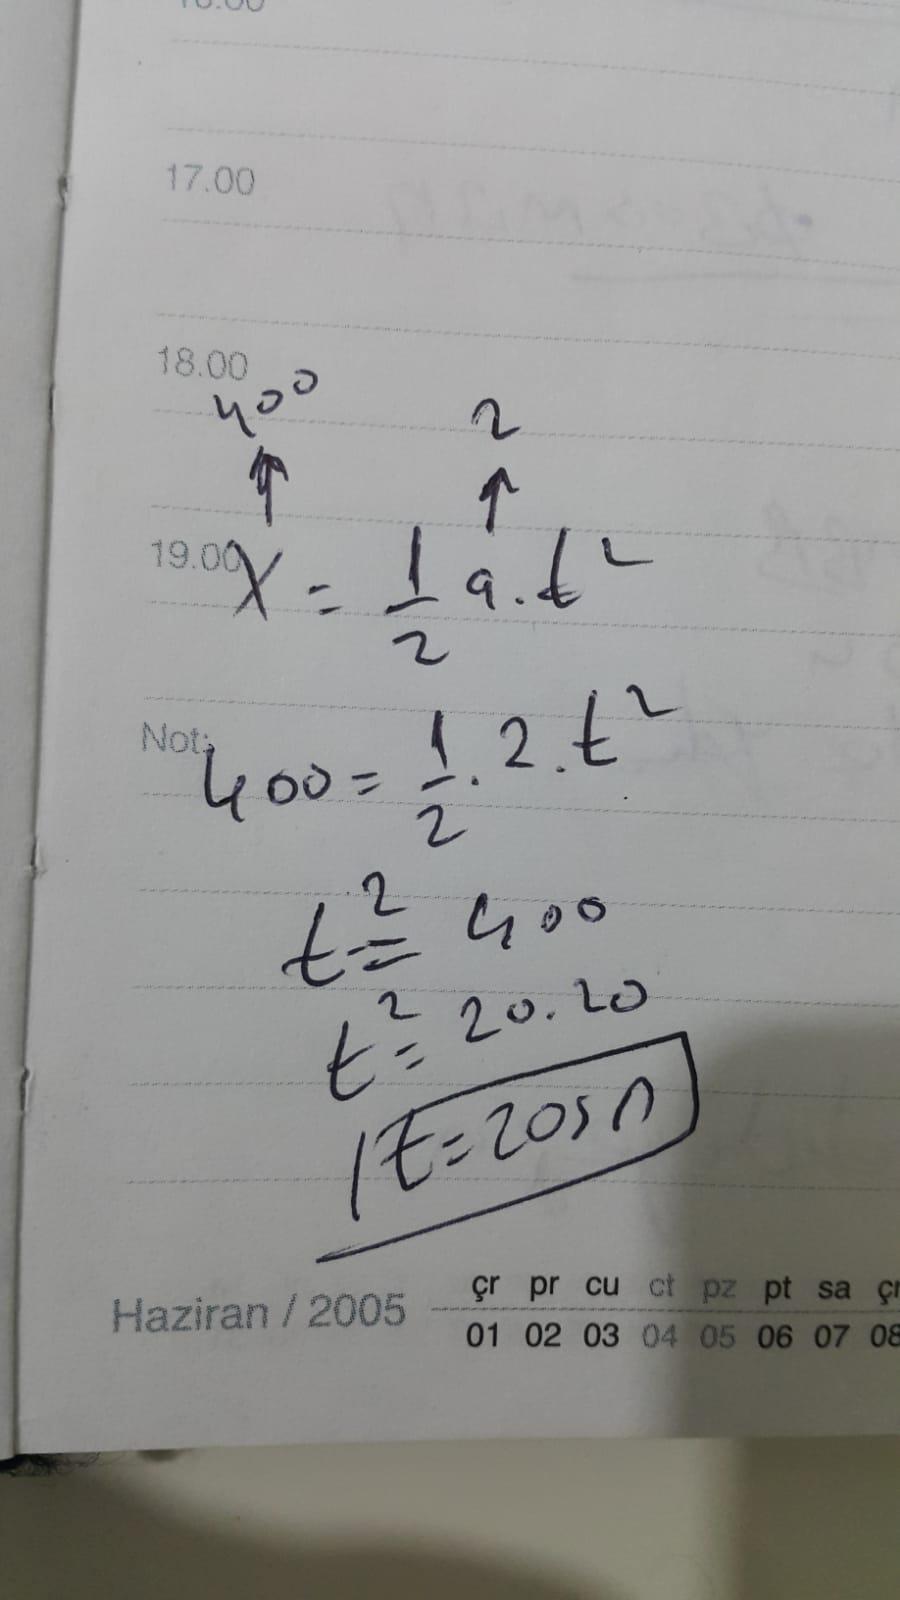 17.00
18.00
400 2
↑ ↑
19.00 X = 1/2 a.t²
Not: 400 = 1/2 . 2 . t²
t² = 400
t² = 20.20
t = 20sn
Haziran / 2005
çr pr cu ct pz pt sa
01 02 03 04 05 06 07 08